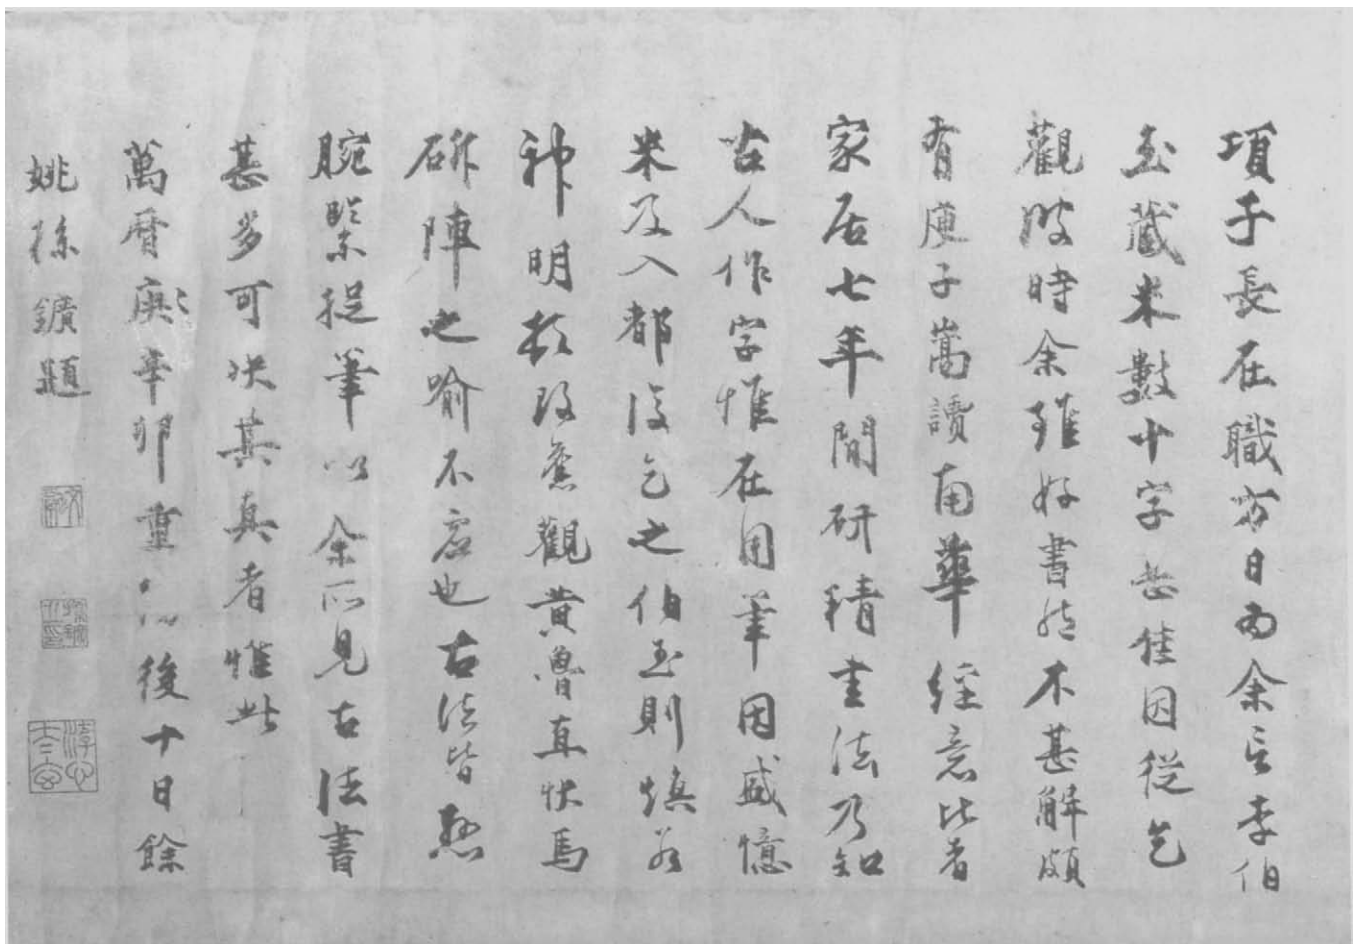 項子長在職方日為余言李伯
玉藏米數十字甚佳因從乞
觀彼時余雖好書然不甚解頗
有庾子嵩讀南華經意比者
家居七年間研精書法乃知
古人作字惟在用筆因盛憶
米及入都復乞之伯玉則煥若
神明頓改舊觀黃魯直快馬
斫陣之喻不虛也古法皆懸
腕緊捉筆以余所見古法書
甚多可決其真者惟此
萬曆庚辛卯重後十日餘
姚孫鑛題